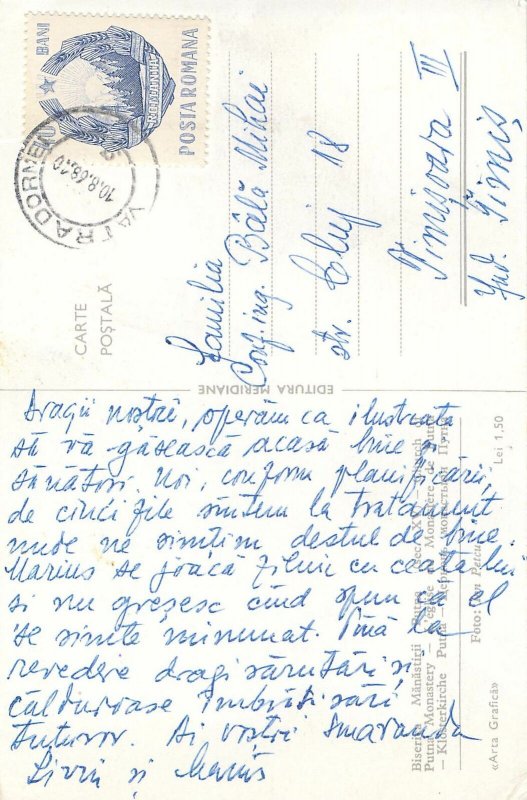 BANI
POSTA ROMANA
VATRA DORNEI
10.8.68.10
CARTE
POȘTALĂ
Familia
Conf. ing. Bălă Mihai
str. Cluj 18
Timișoara III
Jud. Timiș
EDITURA MERIDIANE
Dragii noștri, sperăm ca ilustrata
să vă găsească acasă bine și
sănătoși. Noi, conform planificării,
de cinci zile sîntem la tratament
unde ne simțim destul de bine.
Marius se joacă zilnic cu ceata lui
și nu greșesc cînd spun că el
se simte minunat. Pînă la
revedere dragi sărutări și
călduroase îmbrățișări
tuturor. Ai voștri Smaranda
Liviu și Marius
Biserica Mănăstirii Putna (sec. XV)
Putna Monastery
— Klosterkirche Putna
Foto: Ion Petcu
Lei 1,50
«Arta Grafică»